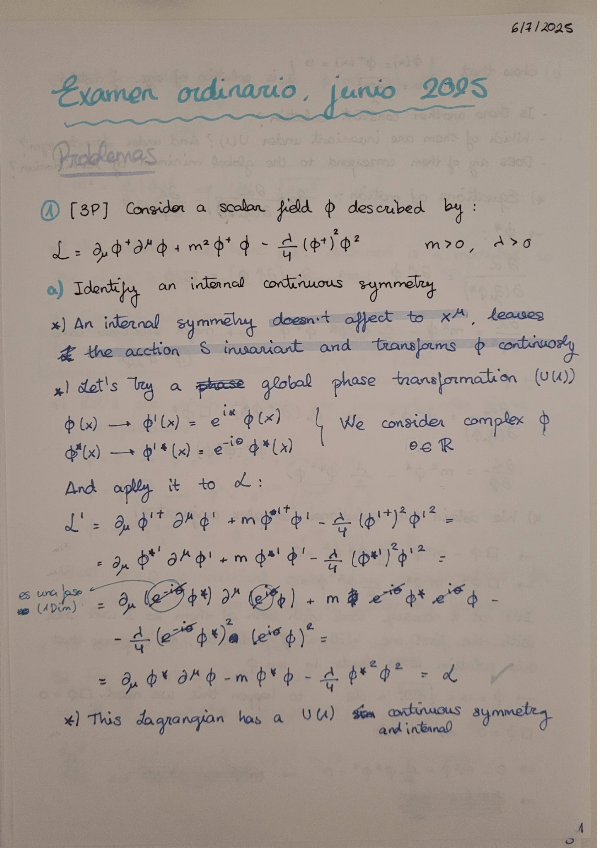 6/7/2025
Examen ordinario, junio 2025
Problemas
① [3P] Consider a scalar field ϕ described by:
ℒ = ∂μ ϕ⁺ ∂^μ ϕ + m² ϕ⁺ ϕ - λ/4 (ϕ⁺)² ϕ² m>0, λ>0
a) Identify an internal continuous symmetry
*) An internal symmetry doesn't affect to x^μ, leaves
the acction S invariant and transforms ϕ continuosly
*) Let's try a phase global phase transformation (U(1))
ϕ(x) → ϕ'(x) = e^{iα} ϕ(x) } We consider complex ϕ
ϕ*(x) → ϕ'*(x) = e^{-iθ} ϕ*(x) θ ∈ ℝ
And aplly it to ℒ:
ℒ' = ∂μ ϕ'⁺ ∂^μ ϕ' + m ϕ'⁺ ϕ' - λ/4 (ϕ'⁺)² ϕ'² =
= ∂μ ϕ*' ∂^μ ϕ' + m ϕ*' ϕ' - λ/4 (ϕ*')² ϕ'² =
es una fase
(1Dim)
= ∂μ (e^{-iθ} ϕ*) ∂^μ (e^{iθ} ϕ) + m e^{-iθ} ϕ* e^{iθ} ϕ -
- λ/4 (e^{-iθ} ϕ*)² (e^{iθ} ϕ)² =
= ∂μ ϕ* ∂^μ ϕ - m ϕ* ϕ - λ/4 ϕ*² ϕ² = ℒ ✓
*) This Lagrangian has a U(1) continuous symmetry
and internal
1